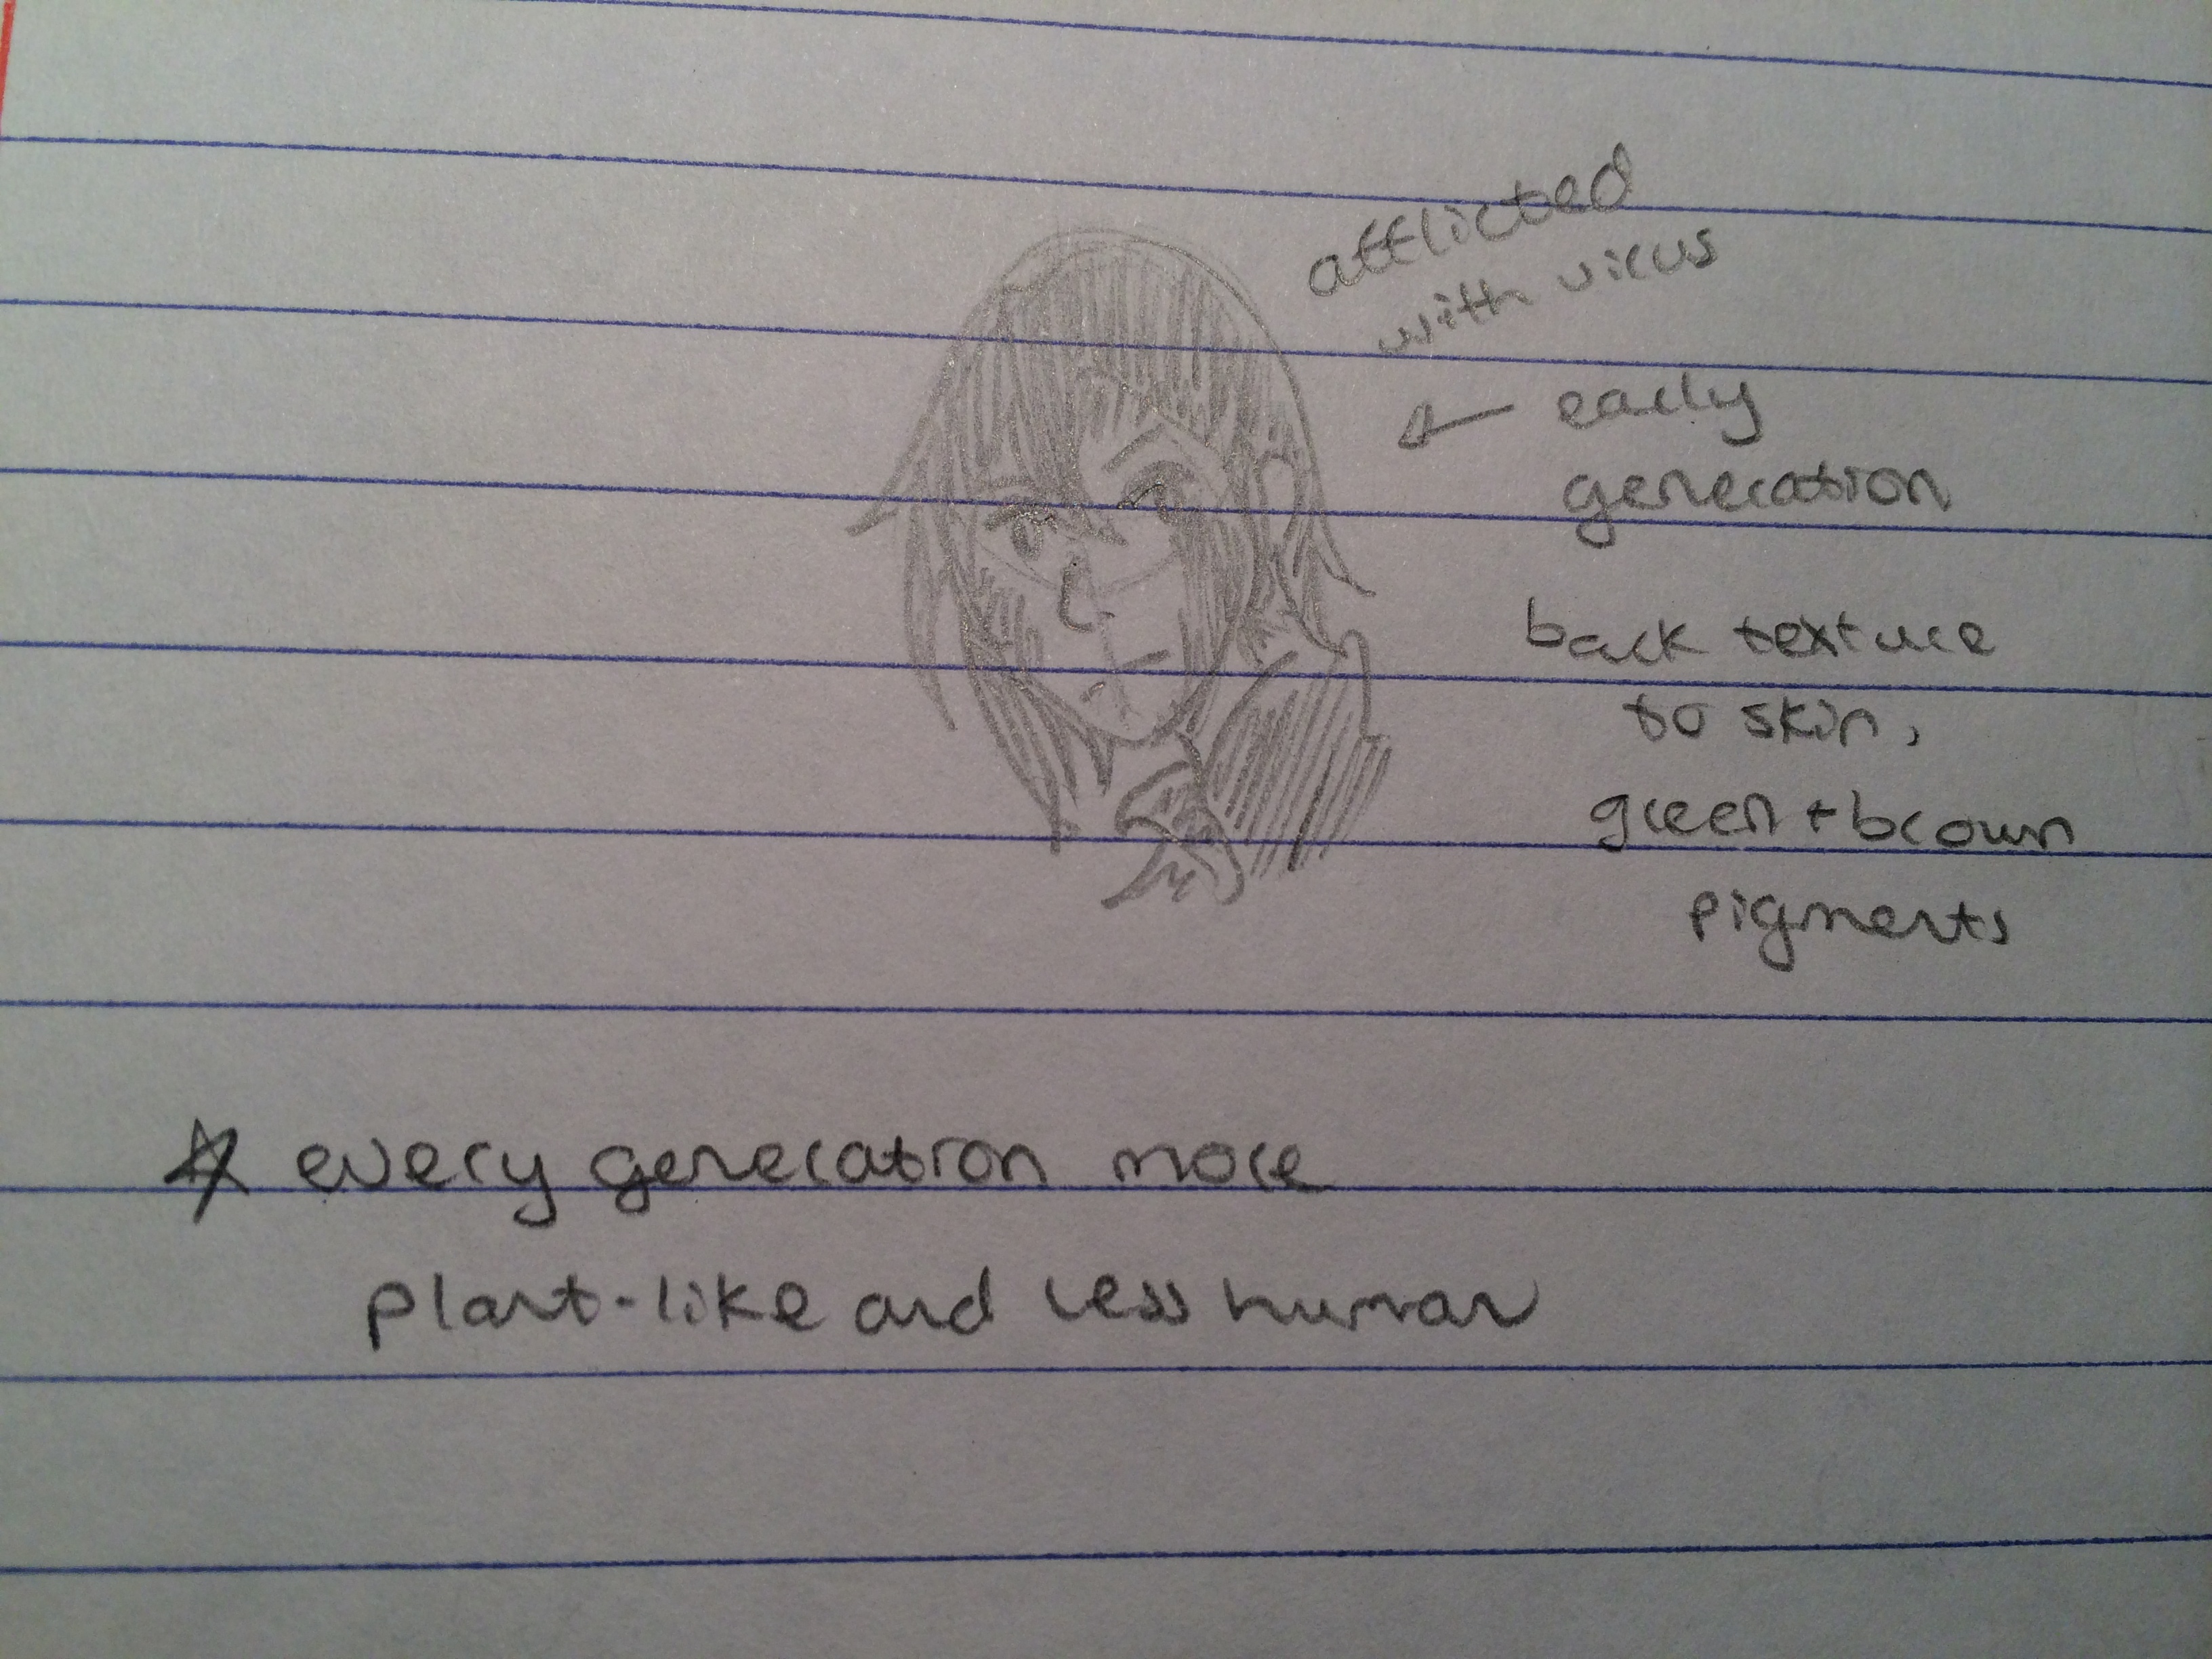 afflicted
with virus
← early
generation
bark texture
to skin,
green + brown
pigments
☆ every generation more
plant-like and less human